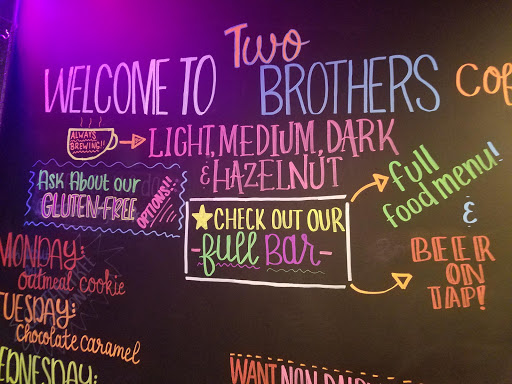 WELCOME TO TWO BROTHERS
ALWAYS
BREWING!!
LIGHT, MEDIUM, DARK
& HAZELNUT
Ask About our
GLUTEN-FREE
OPTIONS!!
CHECK OUT OUR
-full BAR-
full
food menu!
&
BEER
ON
TAP!
MONDAY:
oatmeal cookie
TUESDAY:
chocolate caramel
WANT NON